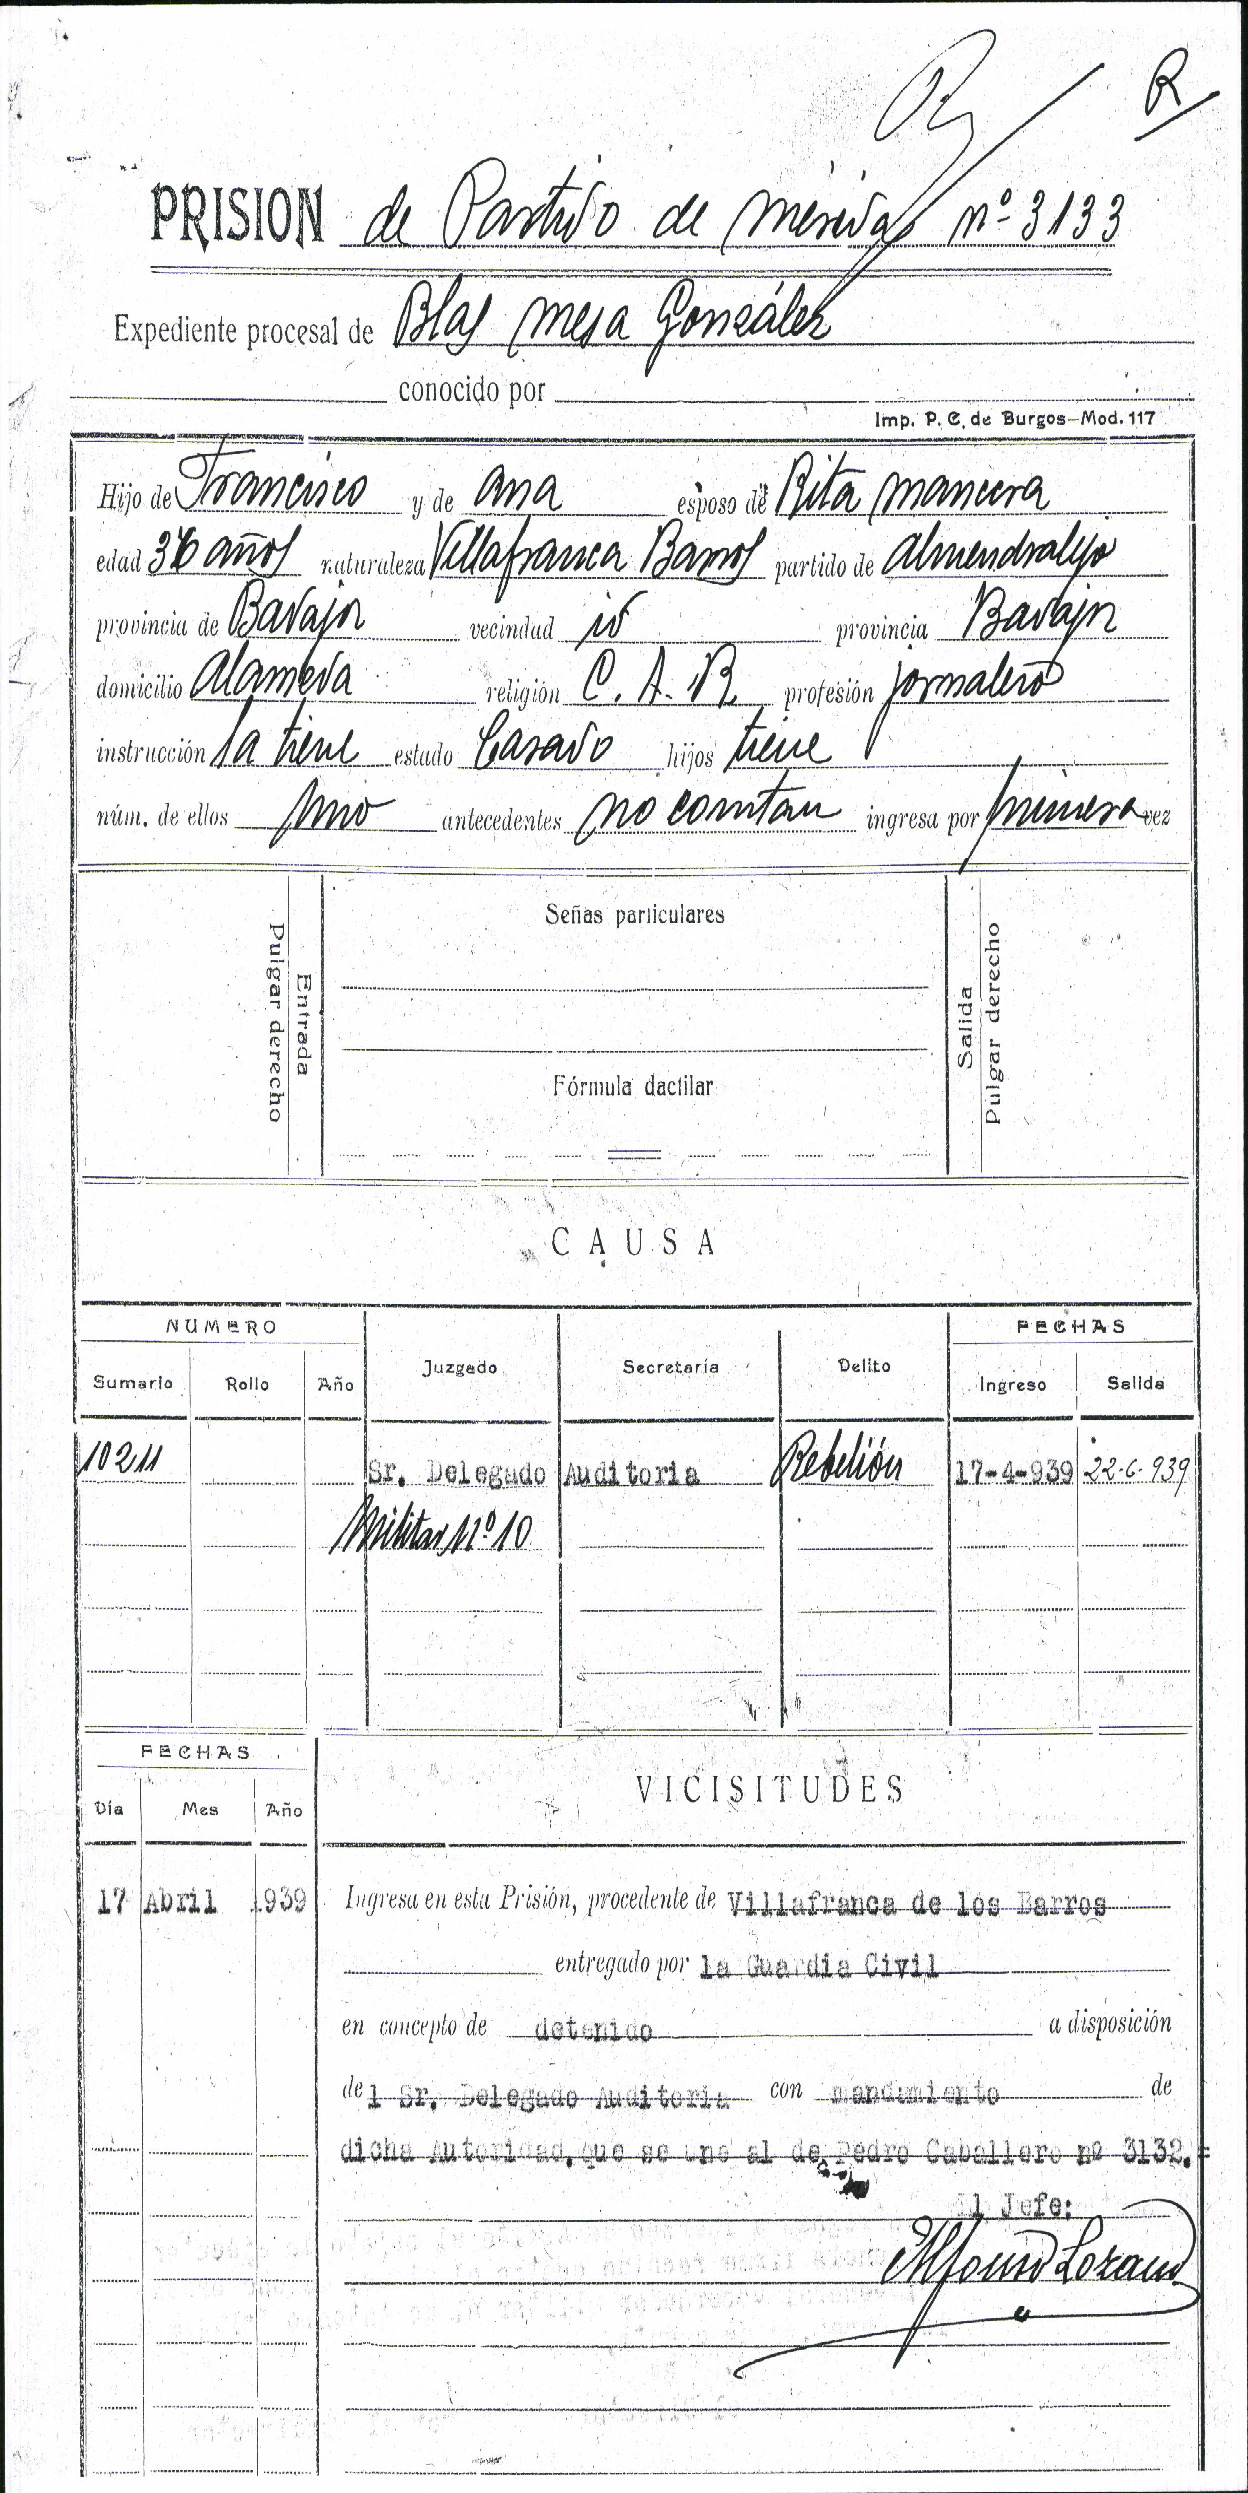 R R
PRISION de Partido de Mérida nº 3133
Expediente procesal de Blas Mesa González
conocido por
Imp. P. C. de Burgos-Mod. 117
Hijo de Francisco y de Ana esposo de Rita Mancera
edad 36 años naturaleza Villafranca Barros partido de Almendralejo
provincia de Badajoz vecindad id provincia Badajoz
domicilio Alameda religión C. A. R. profesión jornalero
instrucción la tiene estado Casado hijos tiene
núm. de ellos uno antecedentes no constan ingresa por primera vez
Pulgar derecho
Entrada
Señas particulares
Fórmula dactilar
Salida
Pulgar derecho
CAUSA
NUMERO FECHAS
Sumario Rollo Año Juzgado Secretaría Delito Ingreso Salida
10211 Sr. Delegado Auditoria Rebelión 17-4-939 22-6-939
Militar Nº 10
FECHAS
VICISITUDES
Día Mes Año
17 Abril 1939 Ingresa en esta Prisión, procedente de Villafranca de los Barros
entregado por la Guardia Civil
en concepto de detenido a disposición
del Sr. Delegado Auditoria con mandamiento de
dicha Autoridad, que se une al de Pedro Caballero nº 3132.=
El Jefe:
Alfonso Lozano